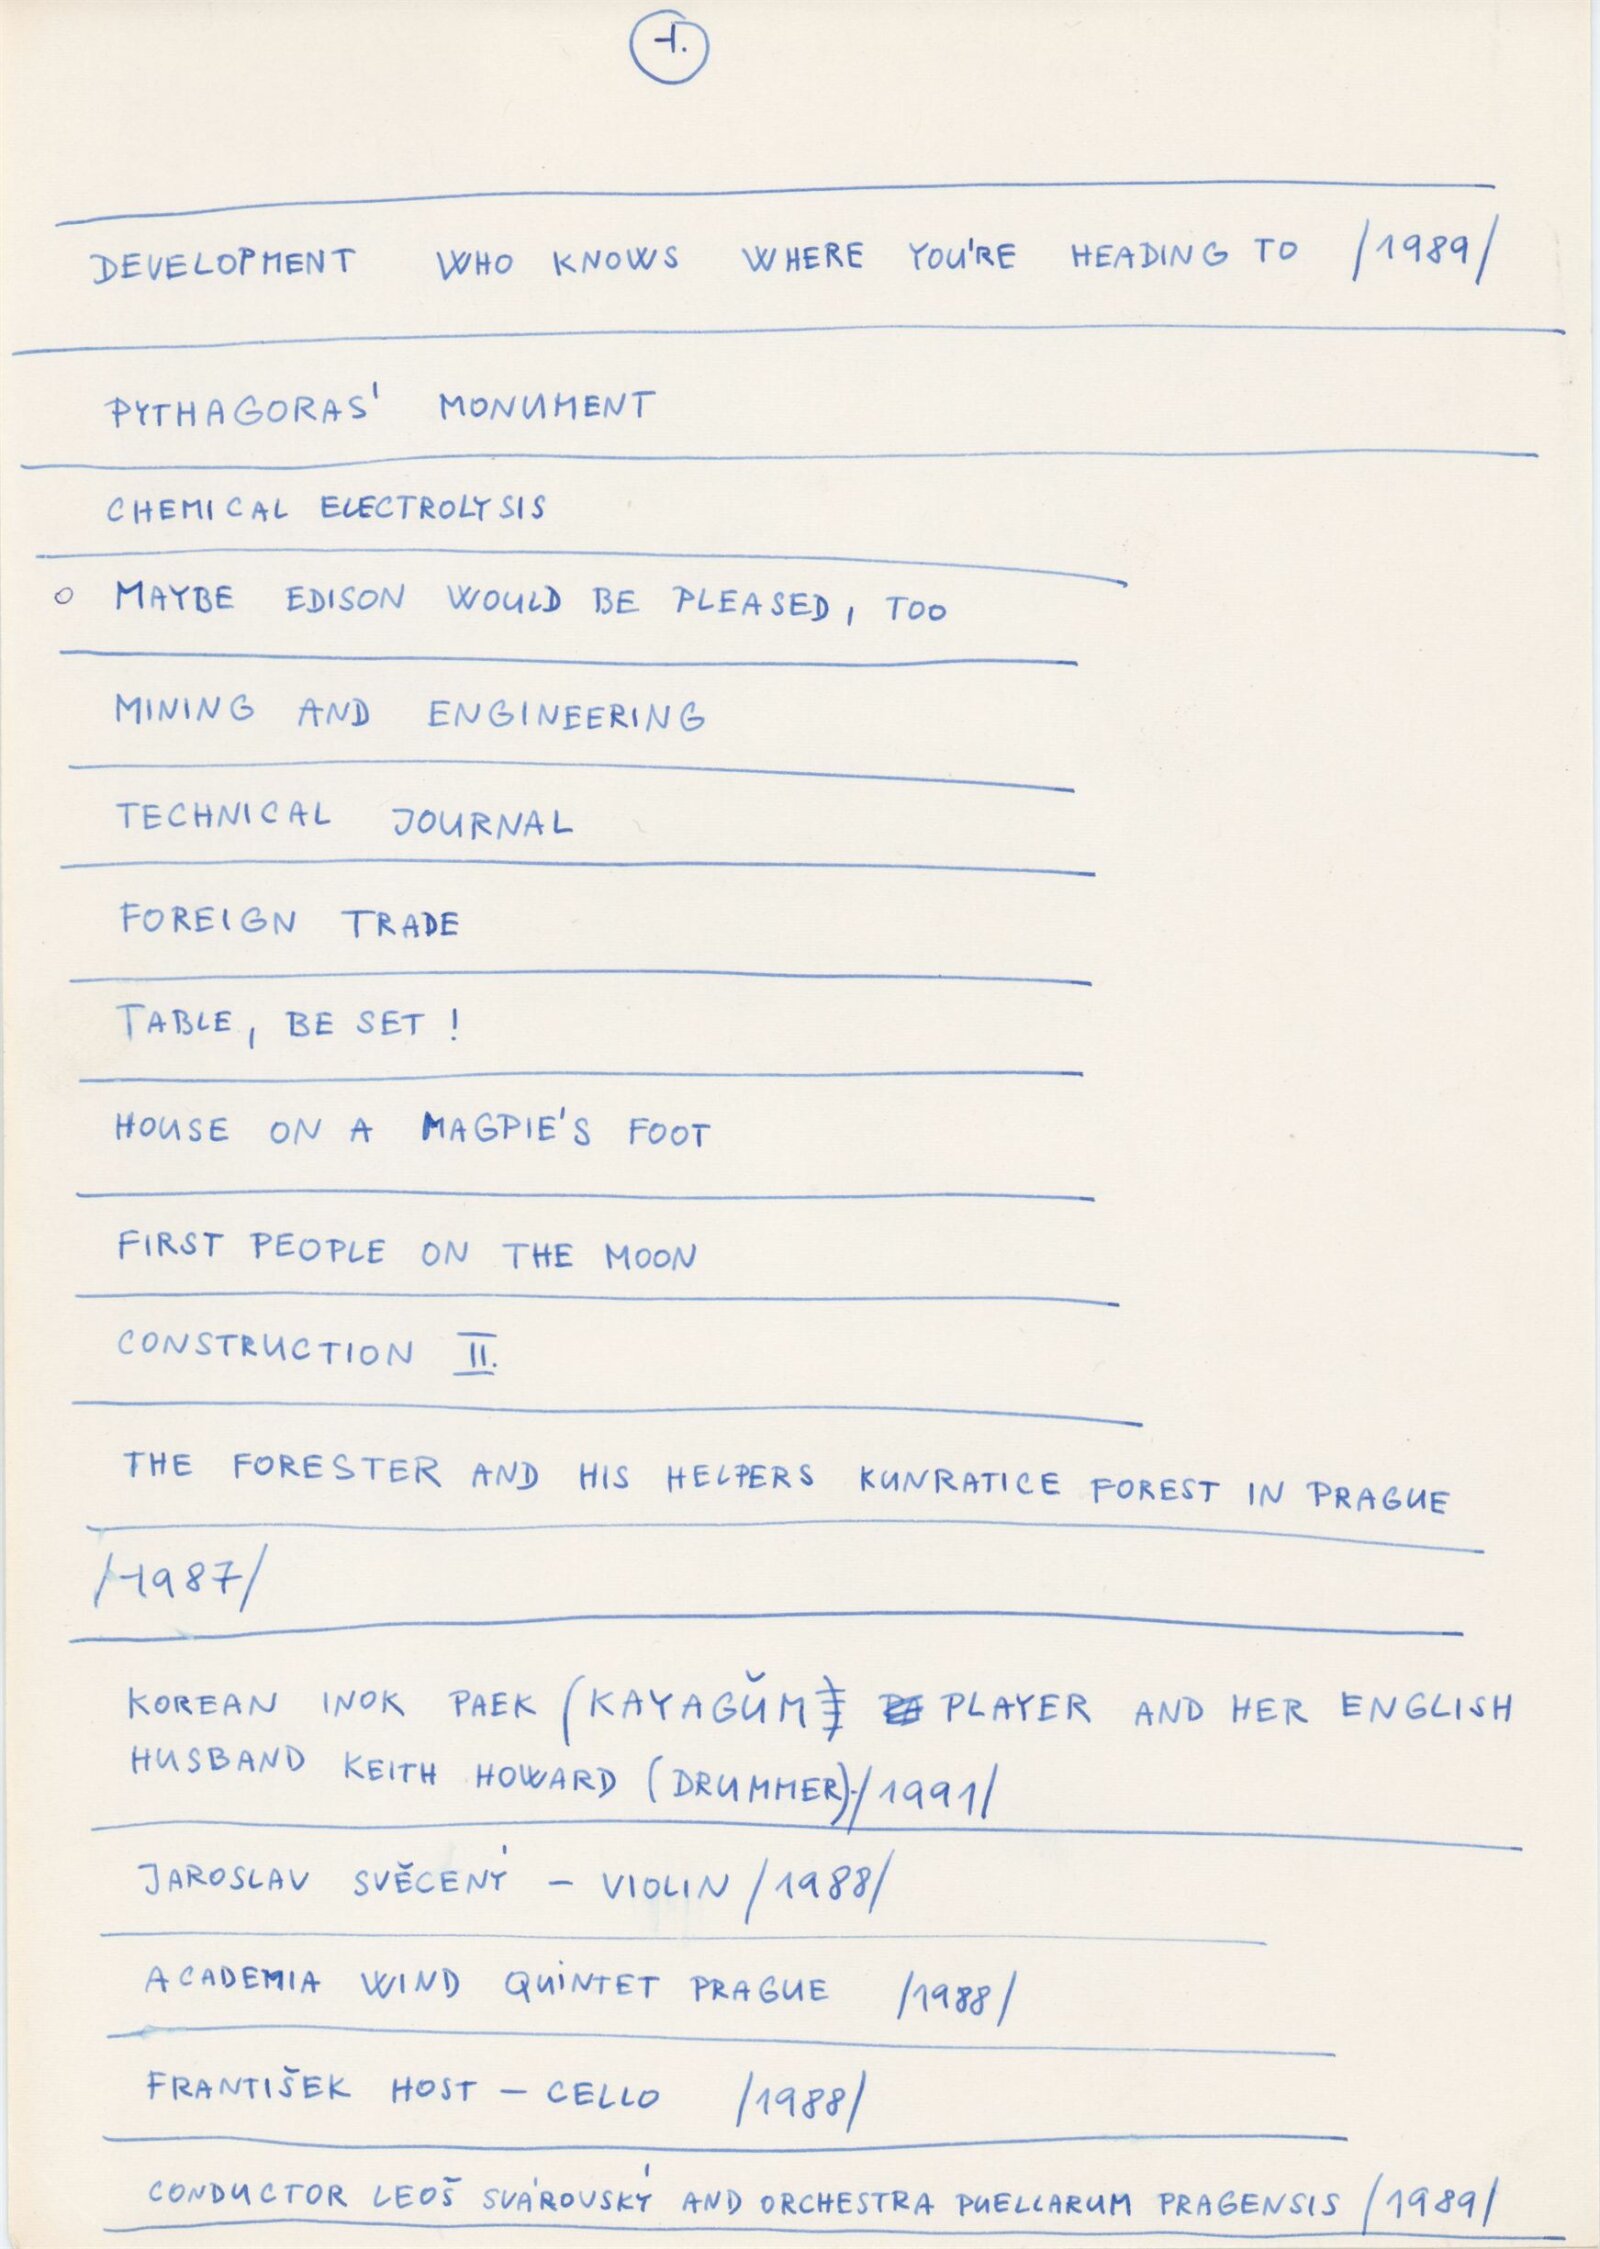 1.
DEVELOPMENT WHO KNOWS WHERE YOU'RE HEADING TO /1989/
PYTHAGORAS' MONUMENT
CHEMICAL ELECTROLYSIS
MAYBE EDISON WOULD BE PLEASED, TOO
MINING AND ENGINEERING
TECHNICAL JOURNAL
FOREIGN TRADE
TABLE, BE SET !
HOUSE ON A MAGPIE'S FOOT
FIRST PEOPLE ON THE MOON
CONSTRUCTION II.
THE FORESTER AND HIS HELPERS KUNRATICE FOREST IN PRAGUE
/1987/
KOREAN INOK PAEK (KAYAGŬM) PLAYER AND HER ENGLISH
HUSBAND KEITH HOWARD (DRUMMER) /1991/
JAROSLAV SVĚCENÝ – VIOLIN /1988/
ACADEMIA WIND QUINTET PRAGUE /1988/
FRANTIŠEK HOST – CELLO /1988/
CONDUCTOR LEOŠ SVÁROVSKÝ AND ORCHESTRA PUELLARUM PRAGENSIS /1989/